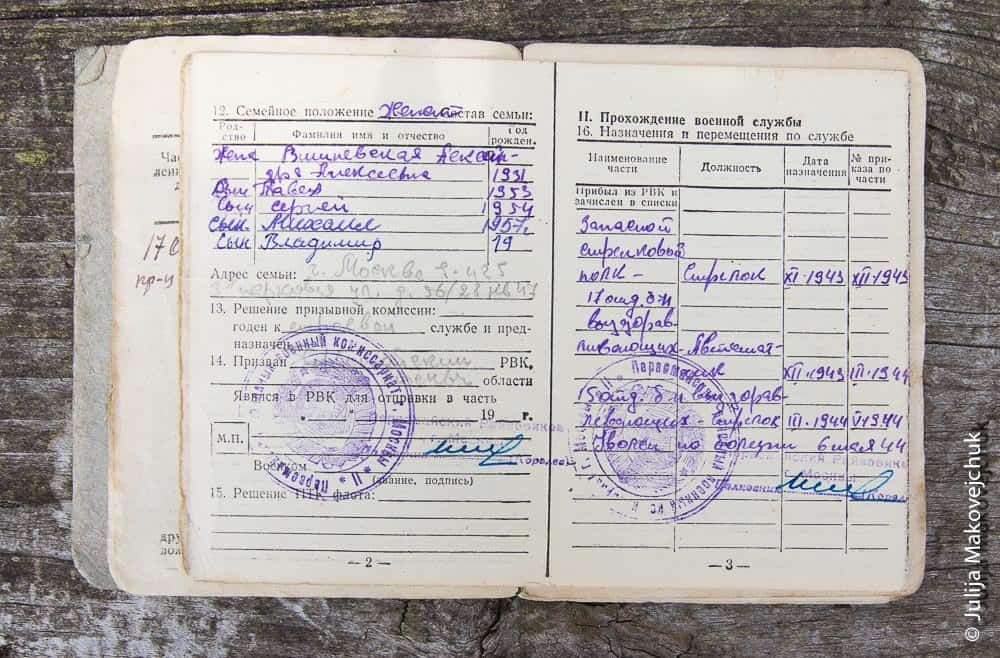 12. Семейное положение Женат Состав семьи:
Родство Фамилия имя и отчество Год рожден.
Жена Вишневская Алексан-
дра Алексеевна 1931
Сын Павел 1953
Сын Сергей 1954
Сын Михаил 1957г.
Сын Владимир 19
Адрес семьи: г. Москва Е-425
ул. д. 36/28 кв 47
13. Решение призывной комиссии:
годен к строевой службе и пред-
назначен
14. Призван РВК,
области
Явился в РВК для отправки в часть
19 г.
М.П.
Военком
(звание, подпись)
15. Решение ПК флота:
— 2 —
II. Прохождение военной службы
16. Назначения и перемещения по службе
Наименование части Должность Дата назначения № приказа по части
Прибыл из РВК и
зачислен в списки
Запасной
стрелковый
полк - Стрелок XI-1943 XII-1943
17 отд. б-н
выздорав-
ливающих - Автомат-
чик XII-1943 III-1944
15 отд. б-н выздорав-
ливающих - стрелок III-1944 V-1944
Уволен по болезни 6 мая 44
Полковник
— 3 —
17
пр-ц
© Julija Makovejchuk